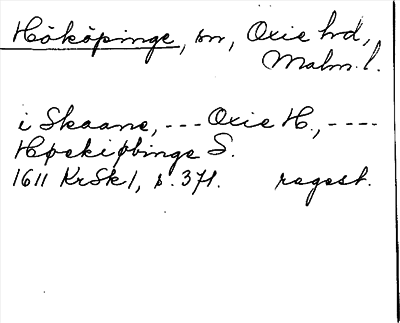 Hököpinge, sn, Oxie hd,
Malm. l.
i Skaane, --- Oxie H., ----
Høekiøbinge S.
1611 KrSk1, s. 371. regest.